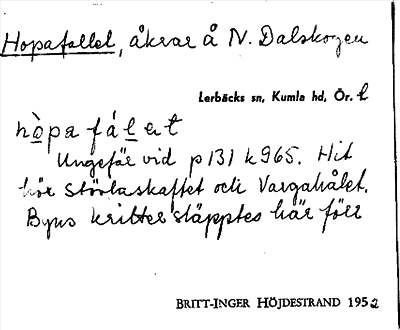 Hopafallet, åkrar å N. Dalskogen
Lerbäcks sn, Kumla hd, Ör. l
hòpa fálet
Ungefär vid p 131 k 965. Hit
hör Störtaskaftet och Vargahålet.
Byns kritter släpptes här förr
BRITT-INGER HÖJDESTRAND 1952